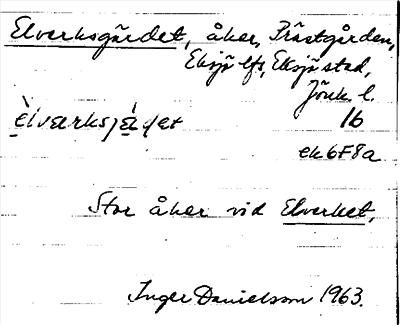 Elverksgärdet, åker, Prästgården,
Eksjö lfs, Eksjö stad,
Jönk. l.
16
ek 6F8a
Stor åker vid Elverket,
Inger Danielsson 1963.